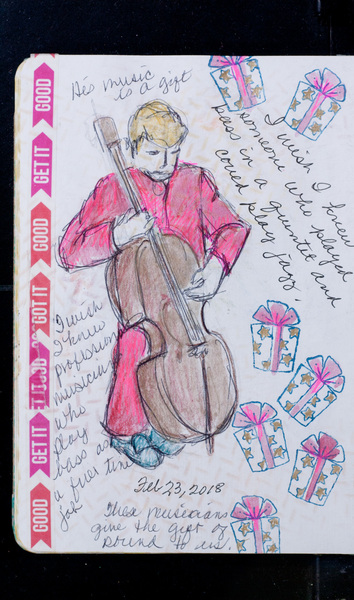 His music
is a gift
I wish I knew
someone who played
bass in a quintet and
could play jazz.
I wish
I knew
professional
musicians
who
play
bass as
a full time
job
Feb 23, 2018
These musicians
give the gift of
sound to us.
GOOD
GET IT
GOOD
GOT IT
GOOD
GET IT
GOOD